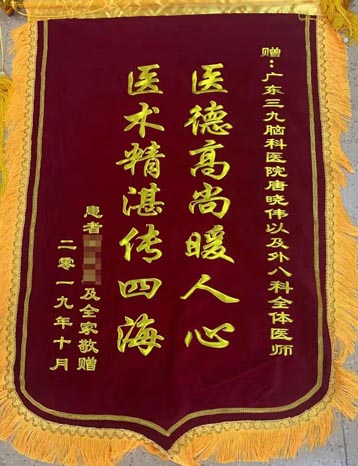 赠：广东三九脑科医院唐晓伟以及外八科全体医师
医德高尚暖人心
医术精湛传四海
患者 及全家敬赠
二零一九年十月